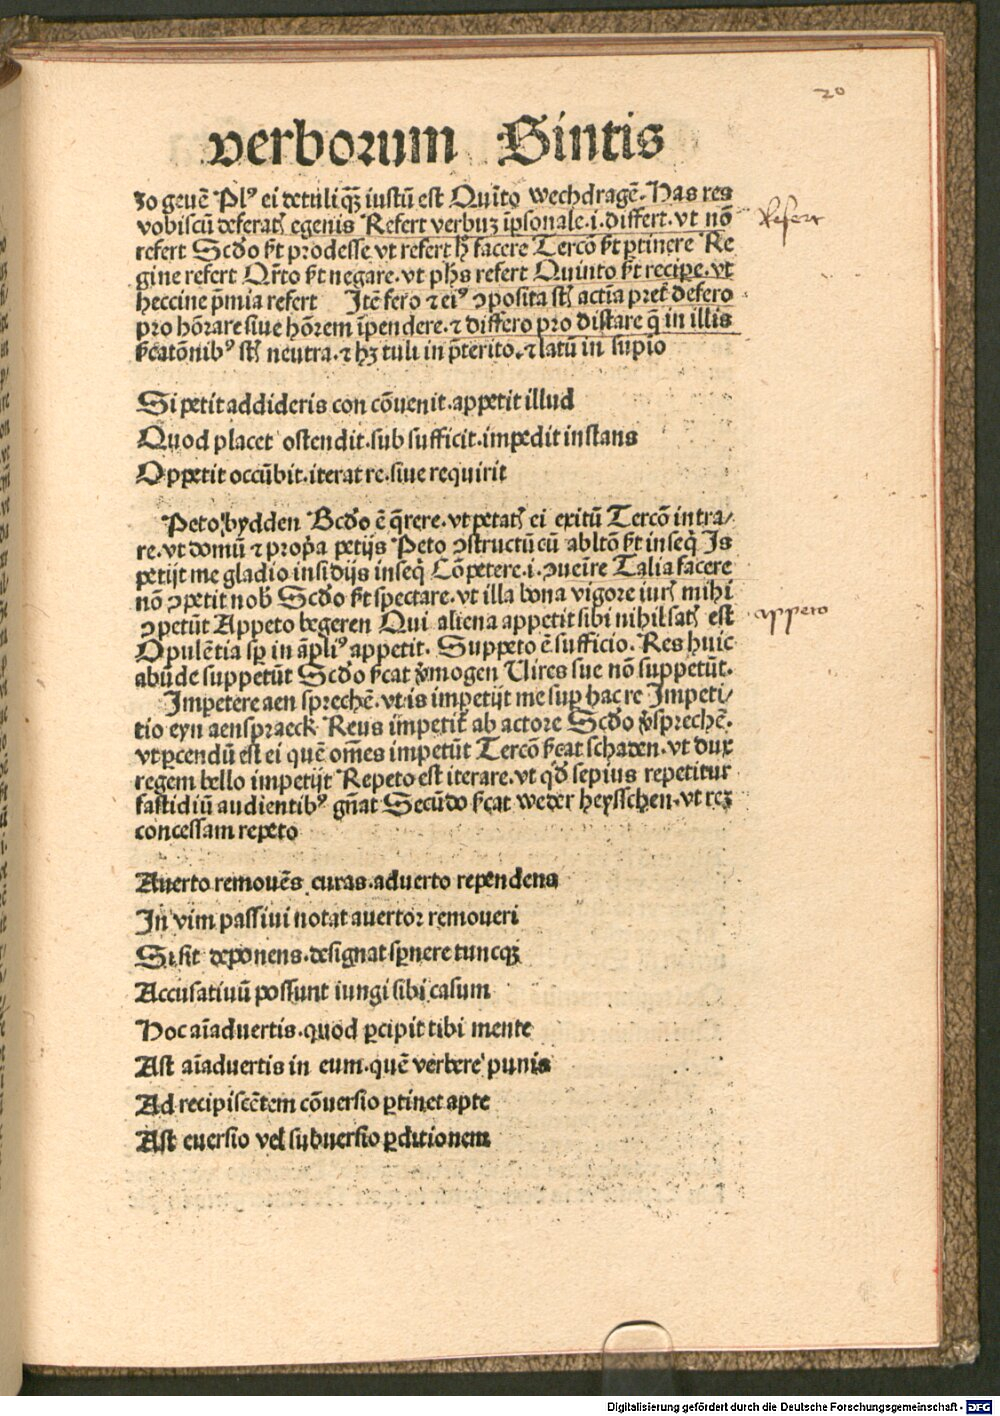 20
verborum Sintis
zo geuē Plꝰ ei detuli qȝ iustū est Quīto wechdragē. Has res
vobiscū deferatꝭ egenis Refert verbuȝ īpsonale .i. differt. vt nō
refert Scd̄o ſꝛt prodesse vt refert hꝭ facere Tercō ſꝛt ꝑtinere Re
gine refert Qꝛ̄to ſꝛt negare. vt ph̄s refert Quinto ſꝛt recipe. vt
heccine p̄mia refert Itē fero ⁊ eiꝰ ꝯposita st̄ actīa pret̄ defero
pro hōrare siue hōrem īpendere. ⁊ differo pro distare q̄ in illis
ſꝛcatōnibꝰ st̄ neutra. ⁊ hȝ tuli in p̄terito. ⁊ latū in supīo
Si petit addideris con cōuenit. appetit illud
Quod placet ostendit. sub sufficit. impedit instans
Oppetit occūbit. iterat re. siue requirit
Peto bydden Scd̄o ē q̄rere. vt petatꝭ ei exitū Tercō intra/
re. vt domū ⁊ prop̄a petijs Peto ꝯstructū cū abltō ſꝛt inseq̄ Is
petijt me gladio insidijs inseq̄ Cōpetere .i. ꝯuēire Talia facere
nō ꝯpetit nob̄ Scd̄o ſꝛt spectare. vt illa bona vigore iurꝭ mihi
ꝯpetūt Appeto begeren Qui aliena appetit sibi nihil satꝭ est
Opulētia sꝑ in āpliꝰ appetit. Suppeto ē sufficio. Res huic
abūde suppetūt Scd̄o ſꝛcat v̄mogen Uires sue nō suppetūt.
Impetere aen sprechē. vt is impetijt me suꝑ hac re Impeti/
tio eyn aenspraeck Reus impetit̄ ab actore Scd̄o v̄sprechē.
vt ꝑcendū est ei quē om̄es impetūt Tercō ſꝛcat schaden. vt dux
regem bello impetijt Repeto est iterare. vt qd̄ sepius repetitur
fastidiū audientibꝰ gn̄at Secūdo ſꝛcat weder heysschen. vt reȝ
concessam repeto
Auerto remouēs curas. aduerto rependens
In vim passiui notat auertor remoueri
Si sit deponens. designat sꝑnere tuncqȝ
Accusatiuū possunt iungi sibi casum
Hoc aīaduertis. quod ꝑcipit tibi mente
Ast aīaduertis in eum. quē verbere punis
Ad recipiscētem cōuersio ꝑtinet apte
Ast euersio vel subuersio ꝑditionem
Refert
appeto
Digitalisierung gefördert durch die Deutsche Forschungsgemeinschaft - DFG